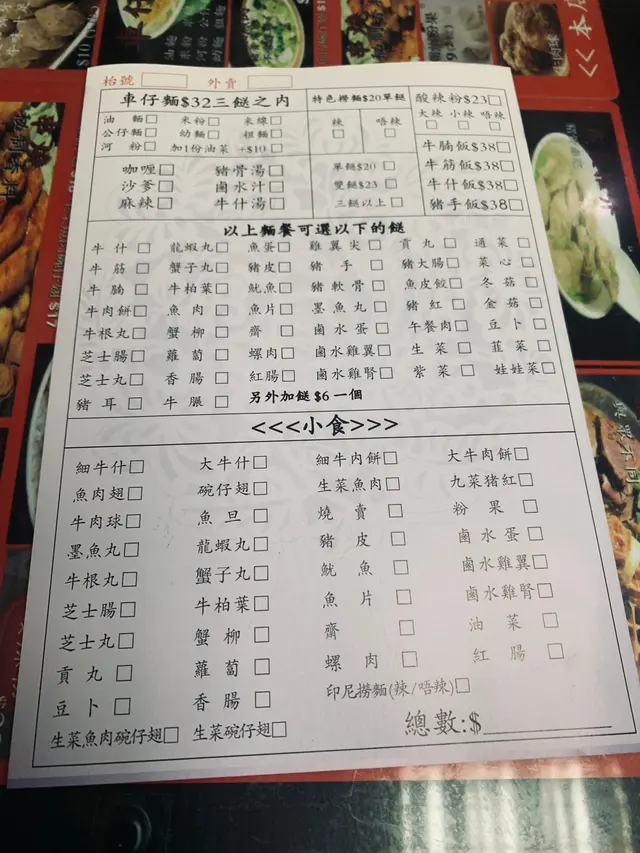 枱號 外賣
車仔麵$32三餸之內
油麵□ 米粉□ 米線□
公仔麵□ 幼麵□ 粗麵□
河粉□ 加1份油菜 +$10□
咖喱□ 豬骨湯□
沙爹□ 鹵水汁□
麻辣□ 牛什湯□
特色撈麵$20單餸
辣□ 唔辣□
單餸$20□
雙餸$23□
三餸以上□
酸辣粉$23□
大辣□ 小辣□ 唔辣□
牛腩飯$38□
牛筋飯$38□
牛什飯$38□
豬手飯$38□
以上麵餐可選以下的餸
牛什□ 龍蝦丸□ 魚蛋□ 雞翼尖□ 貢丸□ 通菜□
牛筋□ 蟹子丸□ 豬皮□ 豬手□ 豬大腸□ 菜心□
牛腩□ 牛柏葉□ 魷魚□ 豬軟骨□ 魚皮餃□ 冬菇□
牛肉餅□ 魚肉□ 魚片□ 墨魚丸□ 豬紅□ 金菇□
牛根丸□ 蟹柳□ 齋□ 鹵水蛋□ 午餐肉□ 豆卜□
芝士腸□ 蘿蔔□ 螺肉□ 鹵水雞翼□ 生菜□ 韮菜□
芝士丸□ 香腸□ 紅腸□ 鹵水雞腎□ 紫菜□ 娃娃菜□
豬耳□ 牛脹□ 另外加餸$6一個
<<<小食>>>
細牛什□ 大牛什□ 細牛肉餅□ 大牛肉餅□
魚肉翅□ 碗仔翅□ 生菜魚肉□ 九菜猪紅□
牛肉球□ 魚旦□ 燒賣□ 粉果□
墨魚丸□ 龍蝦丸□ 豬皮□ 鹵水蛋□
牛根丸□ 蟹子丸□ 魷魚□ 鹵水雞翼□
芝士腸□ 牛柏葉□ 魚片□ 鹵水雞腎□
芝士丸□ 蟹柳□ 齋□ 油菜□
貢丸□ 蘿蔔□ 螺肉□ 紅腸□
豆卜□ 香腸□ 印尼撈麵(辣/唔辣)□
生菜魚肉碗仔翅□ 生菜碗仔翅□ 總數:$